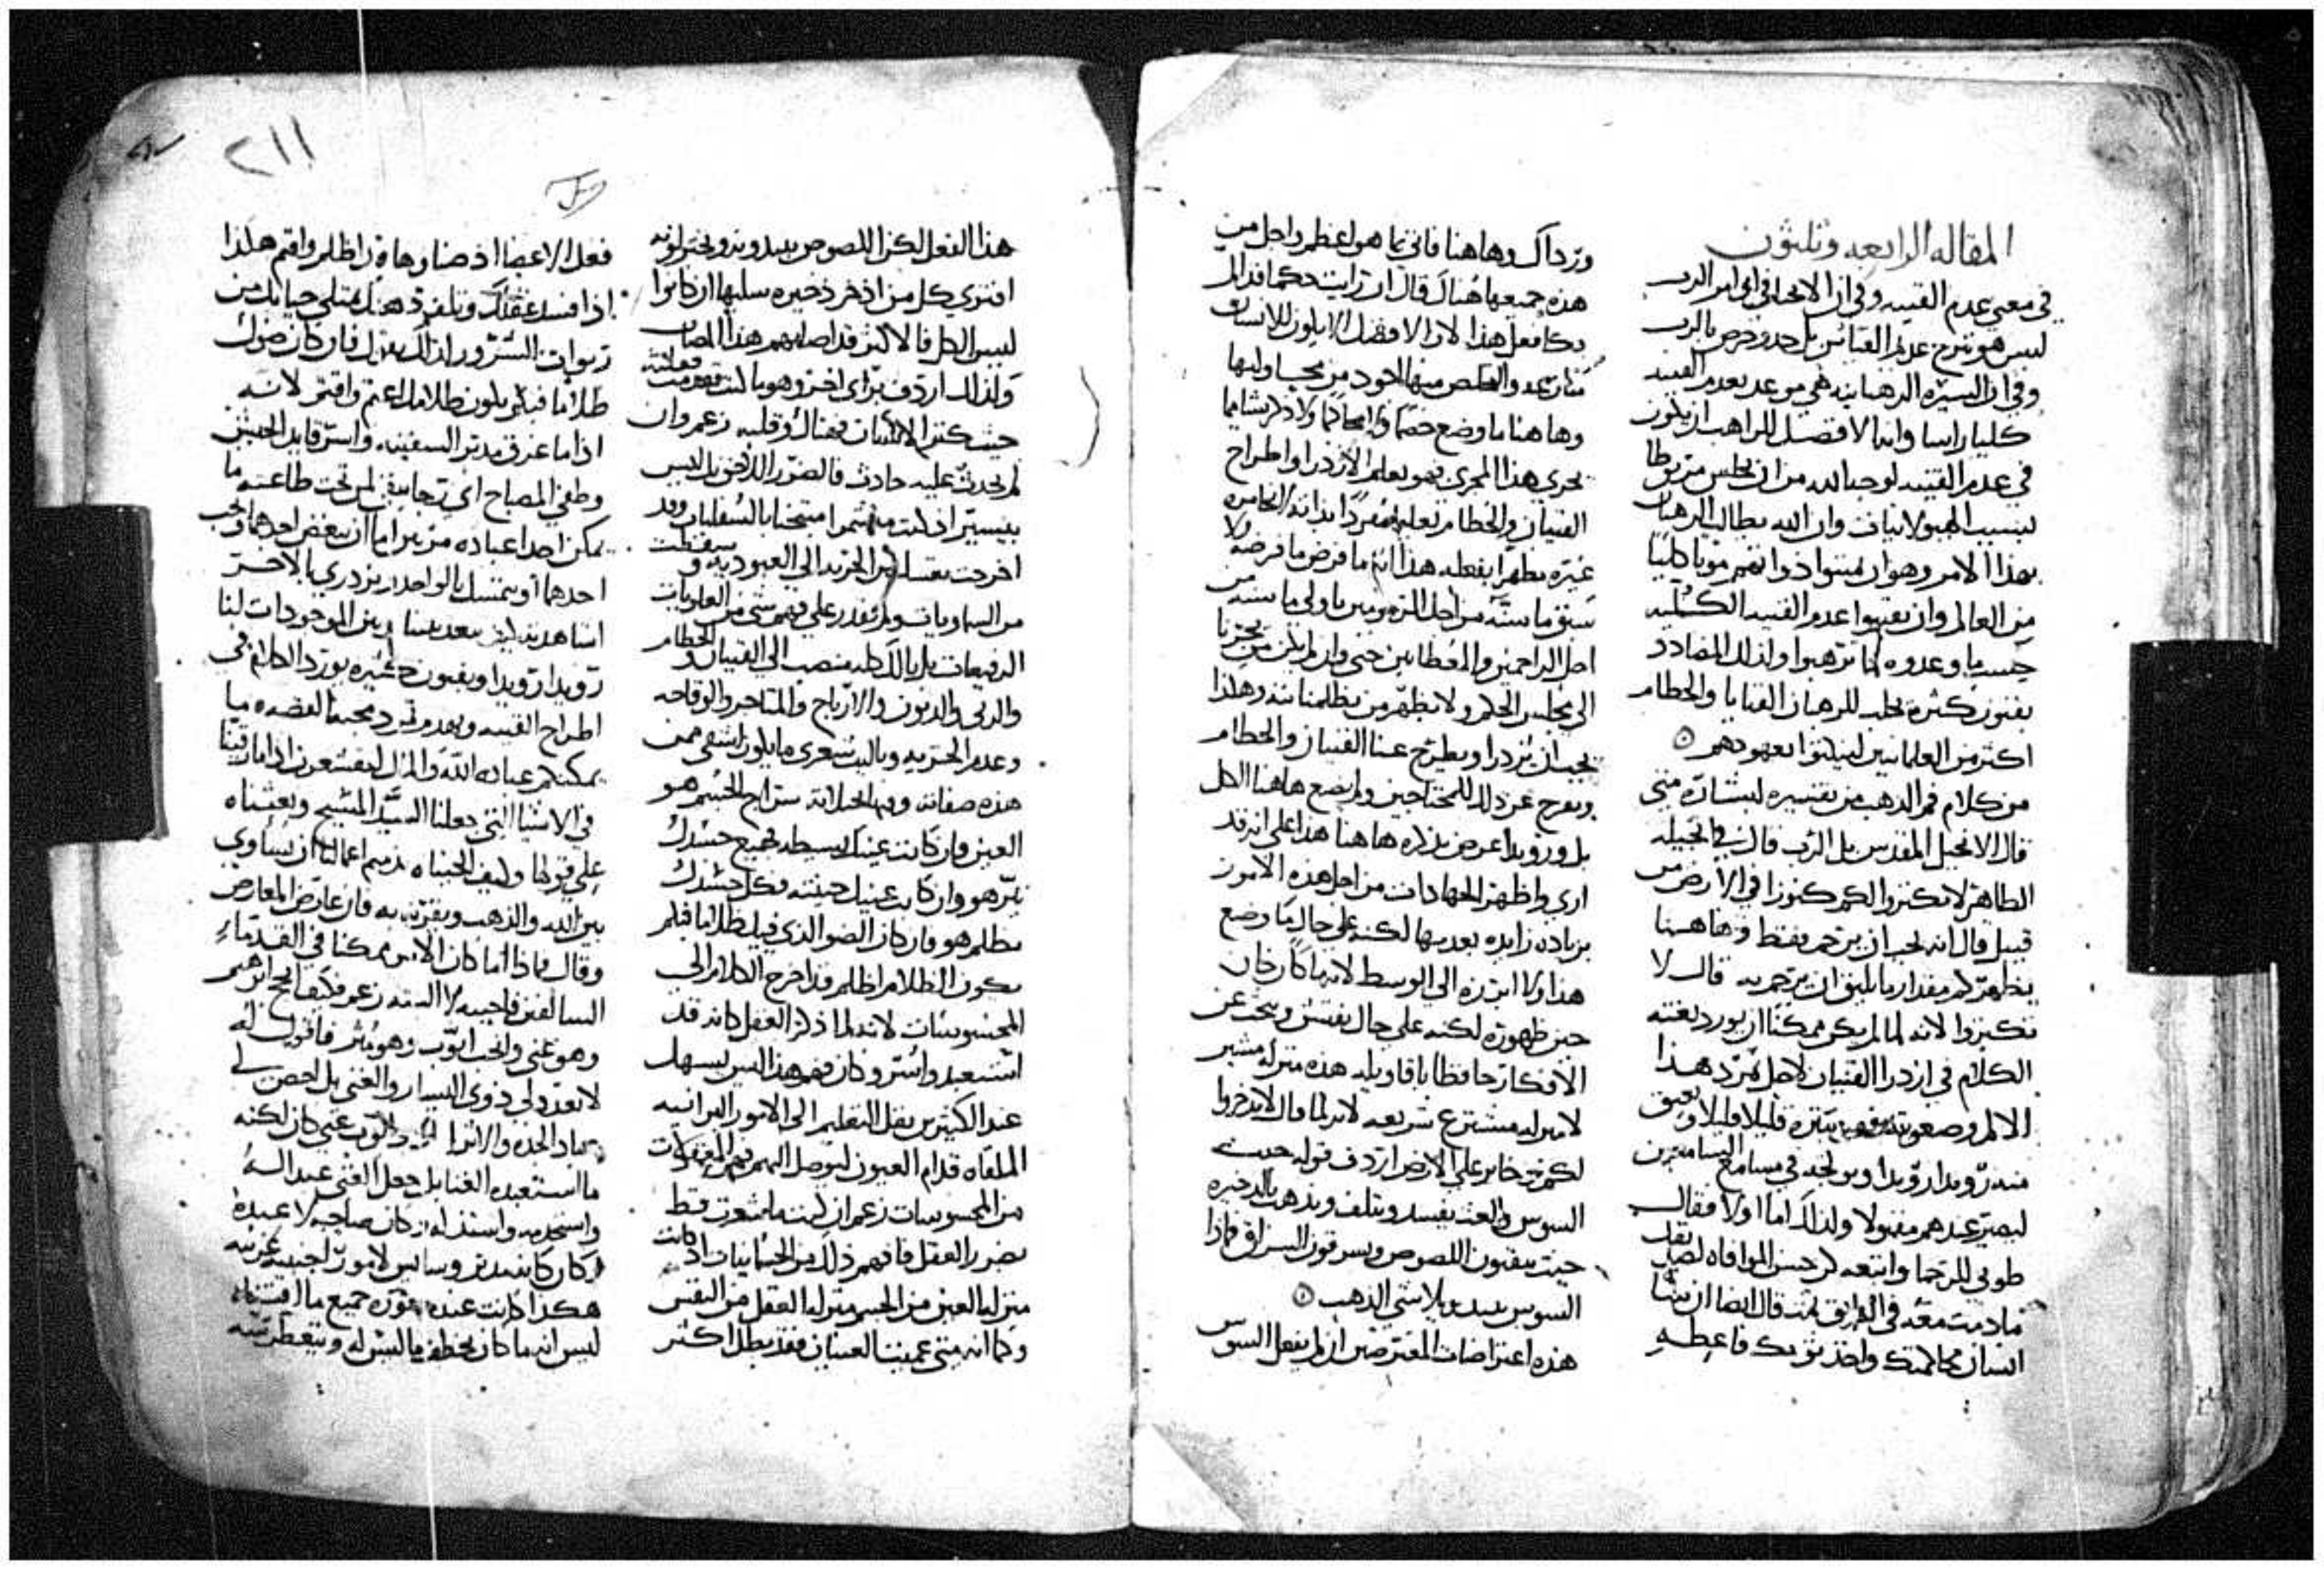 المقاله الرابعه وثلثون
في معنى عدم القنيه وفي ان الانجيلي في اوامر الرب
ليس هو شرح عدم القنائن بل حدود حرص بالرب
وفي ان السيره الرهبانيه هي موعد بعدم القنيه
كليا راسا وانما الافضل للراهب ان يكون
في عدم القنيه لوجه الله من ان يجلس مربوطا
لسبب الهيولانيات وان الله يطالب الرهبان
بهذا الامر وهو ان يميتوا ذواتهم موتا كليا
من العالم وان يقتنوا عدم القنيه الكليه
حسب ما وعدوه لما ترهبوا ولذلك المضادد
بفنون كثيره يجلب للرهبان القنايا والحطام
اكثر من العلمانيين لينكثوا بعهودهم
من كلام فم الذهب من تفسيره لبشاره متى
قال الانجيل المقدس بل الرب قال في انجيله
الطاهر لا تكنزوا لكم كنوزا في الارض من
قبل قال انه يجب ان يرحم فقط وهاهنا
يظهر كم مقدار ما ينبغي ان يرحم به قال لا
تكنزوا لانه لما لم يكن ممكنا ان يورد بغته
الكلام في ازدرا القنيان لاجل تمرد هذا
الالم وصعوبته يسيره قليلا قليلا ويعبق
منه رويدا رويدا ويولجه في مسامع السامعين
ليصير عندهم مقبولا ولذلك اما اولا فقال
طوبى للرحما واتبعه كن حسن الموافاه لضدك
ما دمت معه في الطريق ثم قال ايضا ان شا
انسان محاكمتك واخذ ثوبك فاعطه
ورداك وهاهنا فاتى بما هو اعظم واجل من
هذه جميعها هناك قال ان رايت حكما قد الم
بك افعل هذا لان الافضل الا يكون للانسان
منازعه والتخلص منها اجود من يجب اوليها
وهاهنا ما وضع خصما ولا محاكما ولا ذكر شيا مما
يجري هذا المجرى فهو يعلم الازدرا واطراح
القنيان والحطام تعليما مفردا بذاته
غيره مظهرا بفعله هذا انه ما فرض ما فرضه ولا
سبق ما سنه من اجل المرحومين باولى ما سنه من
اجل الراحمين والمعطايين حتى وان لم يكن من يجرنا
الى مجلس الحكم ولا يظهر من يظلمنا شه وهكذا
يجب ان يزدرا ويطرح عنا القنيان والحطام
ويفرج عن ذلك للمحتاجين ولم يضع هاهنا الكل
بل ورويدا عرض بذكره هاهنا هذا على انه قد
اري واظهر الجهادات من اجل هذه الامور
بزياده زايده بعد بها لكنه على حال ما وضع
هذا ولا ابرزه الى الوسط لانه ما كان حان
حين ظهوره لكنه على حال يفتش ويبحث عن
الافكار حافظا باقاويله هذه منزله مشير
لا منزله مشترع شريعه لانه لما قال لا تدخروا
لكم ذخاير على الارض اردف قوله حيث
السوس والعث يفسد ويتلف ويذهب بالذخيره
حيث ينقبون اللصوص ويسرقون السراق فاذا
السوس يبيد ويلاشي الذهب
هذه اعتراضات المعترضين ان لم يفعل السوس
٢١١
هذا الفعل لكن اللصوص يبيدونه ويختلونه
افترى كل من اذخر ذخيره سلبها ان كانوا
ليس الكل فالاكثر قد اصابهم هذا المصاب
ولذلك اردف براي اخر وهو ما كنت قدمت فقلته
حيث كنز الانسان فهناك وقلبه زعم وان
لم يحدث عليه حادث فالضرر اللاحق بك ليس
بيسير اذ كنت منحنيا بالسفليات وقد
اخرجت نفسك من الحريه الى العبوديه وسقطت
من السماويات ولم تقدر على فهم شي من العلويات
الرفيعات بل بالك كله منصب الى القنيان والحطام
والربى والديون والارباح والمتاجر والوقاحه
وعدم الحريه وياليت شعري ما يكون اشقى ممن
هذه صفاته وبهذا الحال انه سراج الجسم هو
العين فان كانت عينك بسيطه فجميع جسدك
نير هو وان كانت عينك خبيثه فكل جسدك
مظلم هو فان كان الضو الذي فيك ظلاما فكم
يكون الظلام اظلم قد اخرج الكلام الى
المحسوسات لانه لما ذكر العقل كانه قد
استعبد واسر وكان فهم هذا ليس يسهل
عند الكثيرين نقل التعليم الى الامور البرانيه
الملقاه قدام العيون ليوصل اليهم فهم المعقولات
من المحسوسات زعم ان كنت ما شعرت قط
بضرر العقل فافهم ذلك من الجسمانيات اذ كانت
منزله العين من الجسم منزله العقل من النفس
وكما انه متى عميت العينان فقد بطل اكثر
فعل الاعضا اذ ضاوها قد اظلم واقتم هكذا
اذا فسد عقلك وتلف ذهنك تمتلي حياتك من
ربوات الشرور لذلك يقول فان كان ضوك
ظلاما فبكم يكون ظلامك اعتم واقتم لانه
اذا ما غرق مدبر السفينه واسر قايد الجيش
وطفي المصباح اي رجا يبقى لمن تحت طاعته ما
يمكن احدا عباده من ربين اما ان يبغض احدهما ويحب
احدهما او يتمسك بالواحد ويزدري بالاخر
اشاهدته كيف يبعدنا من الموجودات لنا
رويدا رويدا وبفنون كثيره يورد الكلام في
اطراح القنيه ويهدم تمرد محبه الفضه ما
يمكنكم عباده الله والمال لنقشعرن اذا ما راينا
في الاشيا التي جعلنا السيد المسيح وبعثناه
على قولها وكيف الجيناه بذميم اعمالنا ان يساوي
بين الله والذهب ويقرنه به فان عارض المعارض
وقال فاذا اما كان الامر ممكنا في القدماء
السالفين فاجيبه لا البته زعم فكيف انجح ابرهيم
وهو غني وانجب ايوب وهو مثر فاقول له
لا تعدد لي ذوي اليسار والغنى بل احص لي
ايوب غني كان لكنه
ما استعبده الغنا بل جعل الغنى عبدا له
واستخدمه واستذله وكان صاحبه لا عبده
وكان كانه مدبر وسايس لامور اجنبيه غريبه
هكذا كانت عنده موره جميع ما اقتناه
ليس انه ما كان يخطف ما ليس له ويتغطرسه